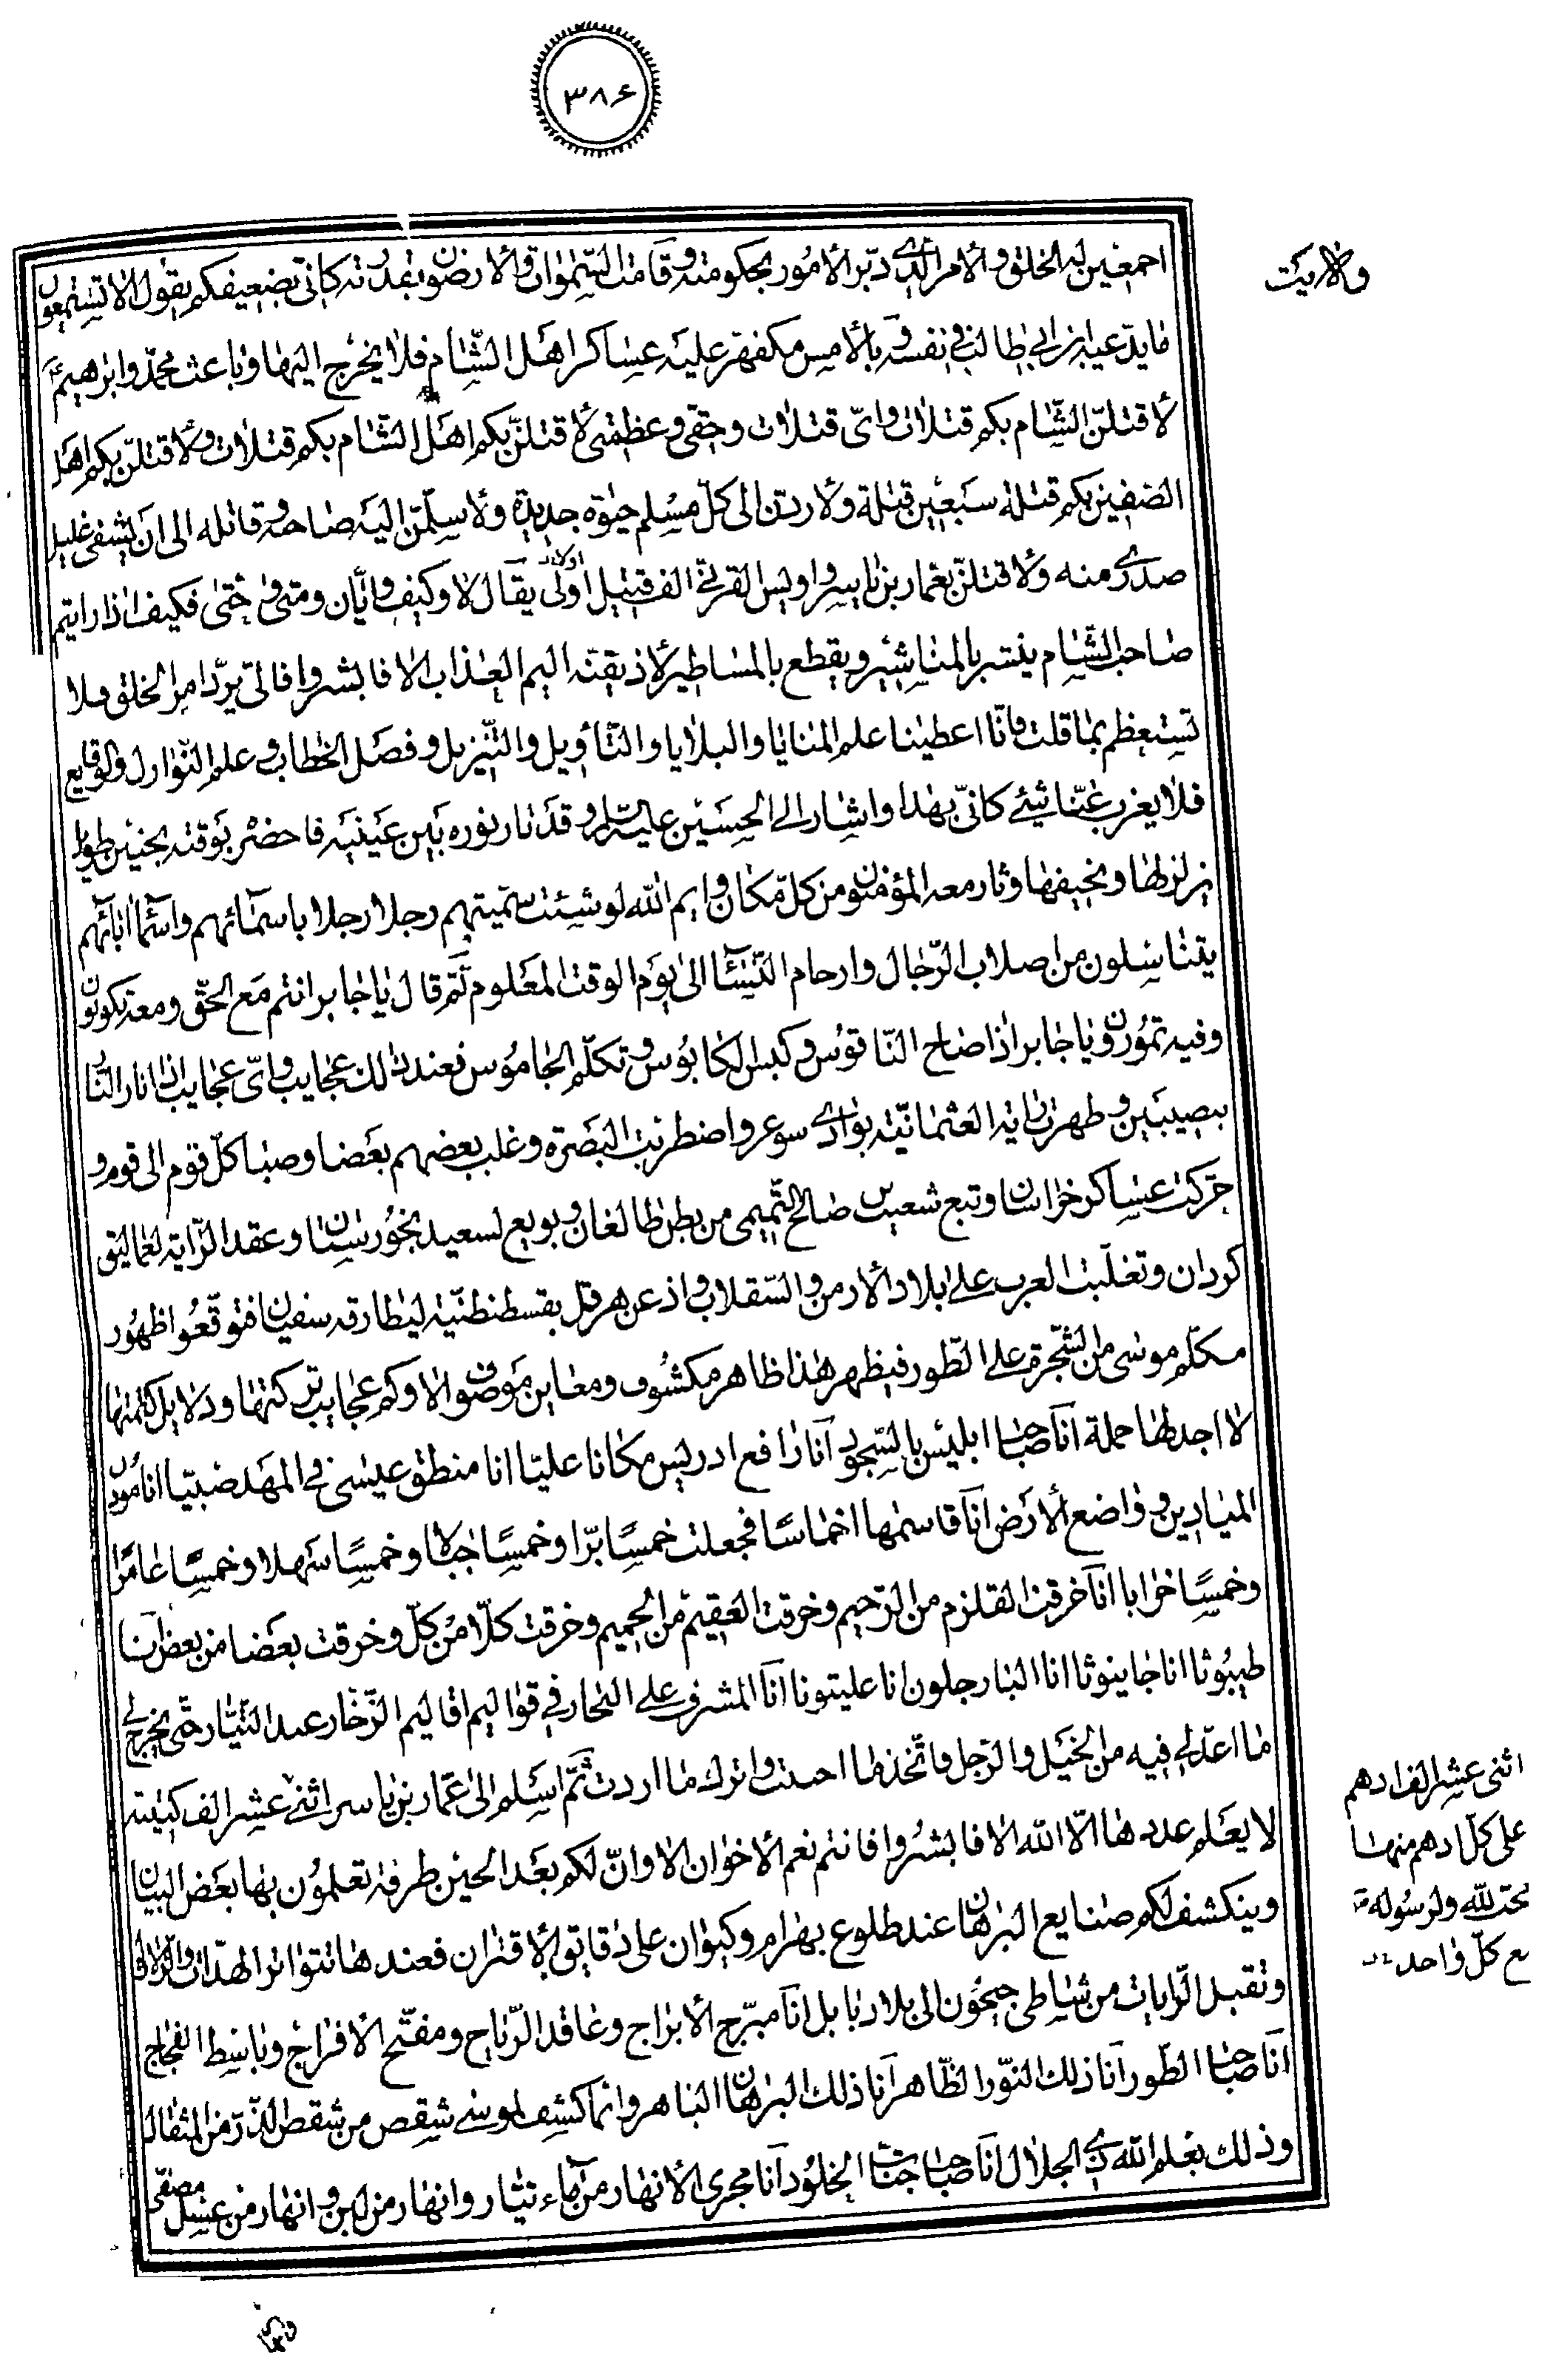 ٣٨۶
اجمعين له الخلق والامر الذى دبّر الامور بحكومته وقامت السّموات والارضون بقدرته كانّى بضعيفكم يقول الا تستمعون
ما يدّعيه ابن ابى طالب فى نفسه وبالامس مكفهر عليه عساكر اهل الشّام فلا يخرج اليها وباعث محمّد وابرهيم
لاقتلنّ الشّام بكم قتلات واىّ قتلات وحقى وعظمتى لاقتلنّ بكم اهل الشّام بكم قتلات ولاقتلنّ بكم اهل
الصّفين بكم قتلة سبعين قتلة ولاردّن الى كلّ مسلم حيوة جديدة ولاسلمنّ اليه صاحبه وقاتله الى ان يشفى غليل
صدرى منه ولاقتلنّ بعمار بن ياسر واويس القرنىّ الف قتيل اولى يقال لا وكيف وايّان ومتى وحتّى فكيف اذا رايتم
صاحب الشّام ينشر بالمناشير ويقطع بالمساطير لاذيقنّه اليم العذاب الا فابشروا فالىّ يردّ امر الخلق فلا
تستعظم بما قلت فانّا اعطينا علم المنايا والبلايا والتّأويل والتّنزيل وفصل الخطاب وعلم النّوازل والوقايع
فلا يعزب عنّا شيئ كانّى بهذا واشار الى الحسين عليه السلام وقد نار نوره بين عينيه فاحضر بوقته بحنين طويل
يزلزلها ويخيفها وثار معه المؤمنون من كلّ مكان وايم اللّه لو شئت سمّيتهم رجلا رجلا باسمائهم واسمآء ابائهم
يتناسلون من اصلاب الرّجال وارحام النّسآء الى يوم الوقت المعلوم ثمّ قال يا جابر انتم مع الحقّ ومعه تكونون
وفيه تموتون ويا جابر اذا صاح النّاقوس وكبس الكابوس وتكلّم الجاموس فعند ذلك عجايب واىّ عجايب اذا انار النّار
بنصيبين وظهر راية العثمانيّة بوادى سوء واضطربت البصرة وغلب بعضهم بعضا وصبا كلّ قوم الى قوم و
حرّكت عساكر خراسان وتبع شعيب بن صالح التّميمى من بطن طالغان وبويع لسعيد بخوزستان وعقد الرّاية لعماليق
كردان وتغلّبت العرب على بلاد الارمن والسّقلاب واذعن هرقل بقسطنطنيّة لبطارقه سفيان فتوقّعوا ظهور
مكلّم موسى من الشّجرة على الطّور فيظهر هذا ظاهر مكشوف ومعاين موصوف الا وكم عجايب تركتها ودلايل كتمتها
لا اجد لها حملة انا صاحب ابليس بالسّجود انا رافع ادريس مكانا عليّا انا منطق عيسى فى المهد صبيّا انا مدين
الميادين وواضع الارض انا قاسمها اخماسًا فجعلت خمسًا برّا وخمسًا جبالا وخمسًا سهلا وخمسًا عامرًا
وخمسًا خرابا انا خرقت القلزم من الرّحيم وخرقت العقيم من الحميم وخرقت كلّا من كلّ وخرقت بعضا من بعض انا
طيبوثا انا جانبوثا انا البارجلون انا عليثوثا انا المشرف على البحار فى قواليم اقاليم الزّخّار عند التّيّار حتّى يخرج لى
ما اعدّ لى فيه من الخيل والرّجل فاتّخذ ما احببت واترك ما اردت ثمّ اسلم الى عمّار بن ياسر اثنى عشر الف كتيبة
لا يعلم عددها الّا اللّه الا فابشروا فانتم نعم الاخوان الا وانّ لكم بعد الحين طرفة تعلمون بها بعض البيان
وينكشف لكم صنايع البرهان عند طلوع بهرام وكيوان على دقايق الاقتران فعندها تتواتر الهدّات والزّلازل
وتقبل الرّايات من شاطى جيحون الى بلاد بابل انا مبرّج الابراج وعاقد الرّياح ومفتّح الافراج وباسط الفجاج
انا صاحب الطّور انا ذلك النّور الظّاهر انا ذلك البرهان الباهر وانما كشف لموسى شقص من شقص الذّر من المثقال
وذلك بعلم اللّه ذى الجلال انا صاحب جنات الخلود انا مجرى الانهار من مآء تيّار وانهار من لبن وانهار من عسل مصفّى
اثنى عشر الف ادهم
على كلّ ادهم منها
محبّ للّه ولرسوله
مع كلّ واحد